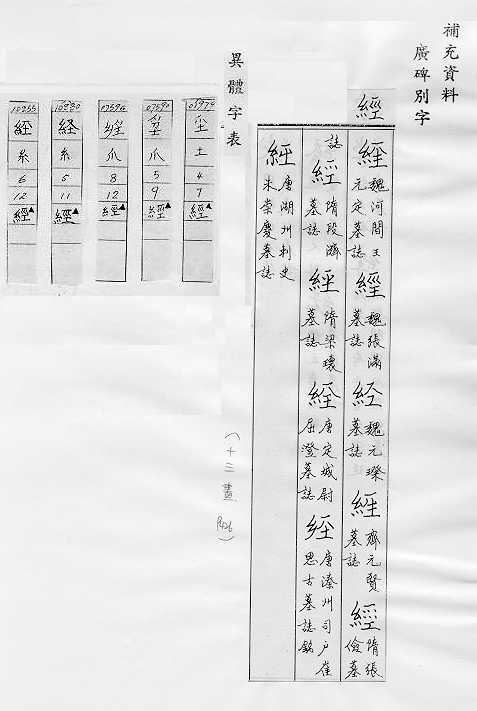 補充資料
廣碑別字
經
經 魏河間王元定墓誌 經 魏張滿墓誌 經 魏元璨墓誌 經 齊元賢墓誌 經 隋張儉墓
誌 經 隋段濟墓誌 經 隋梁瓌墓誌 經 唐定城尉屈澄墓誌 經 唐溱州司戶崔思古墓誌銘
経 唐湖州刺史朱崇慶墓誌
(十三畫 P426)
異體字表
土 4 7 經▲
爪 5 9 經▲
爪 8 12 經▲
経 糸 5 11 經▲
糸 6 12 經▲